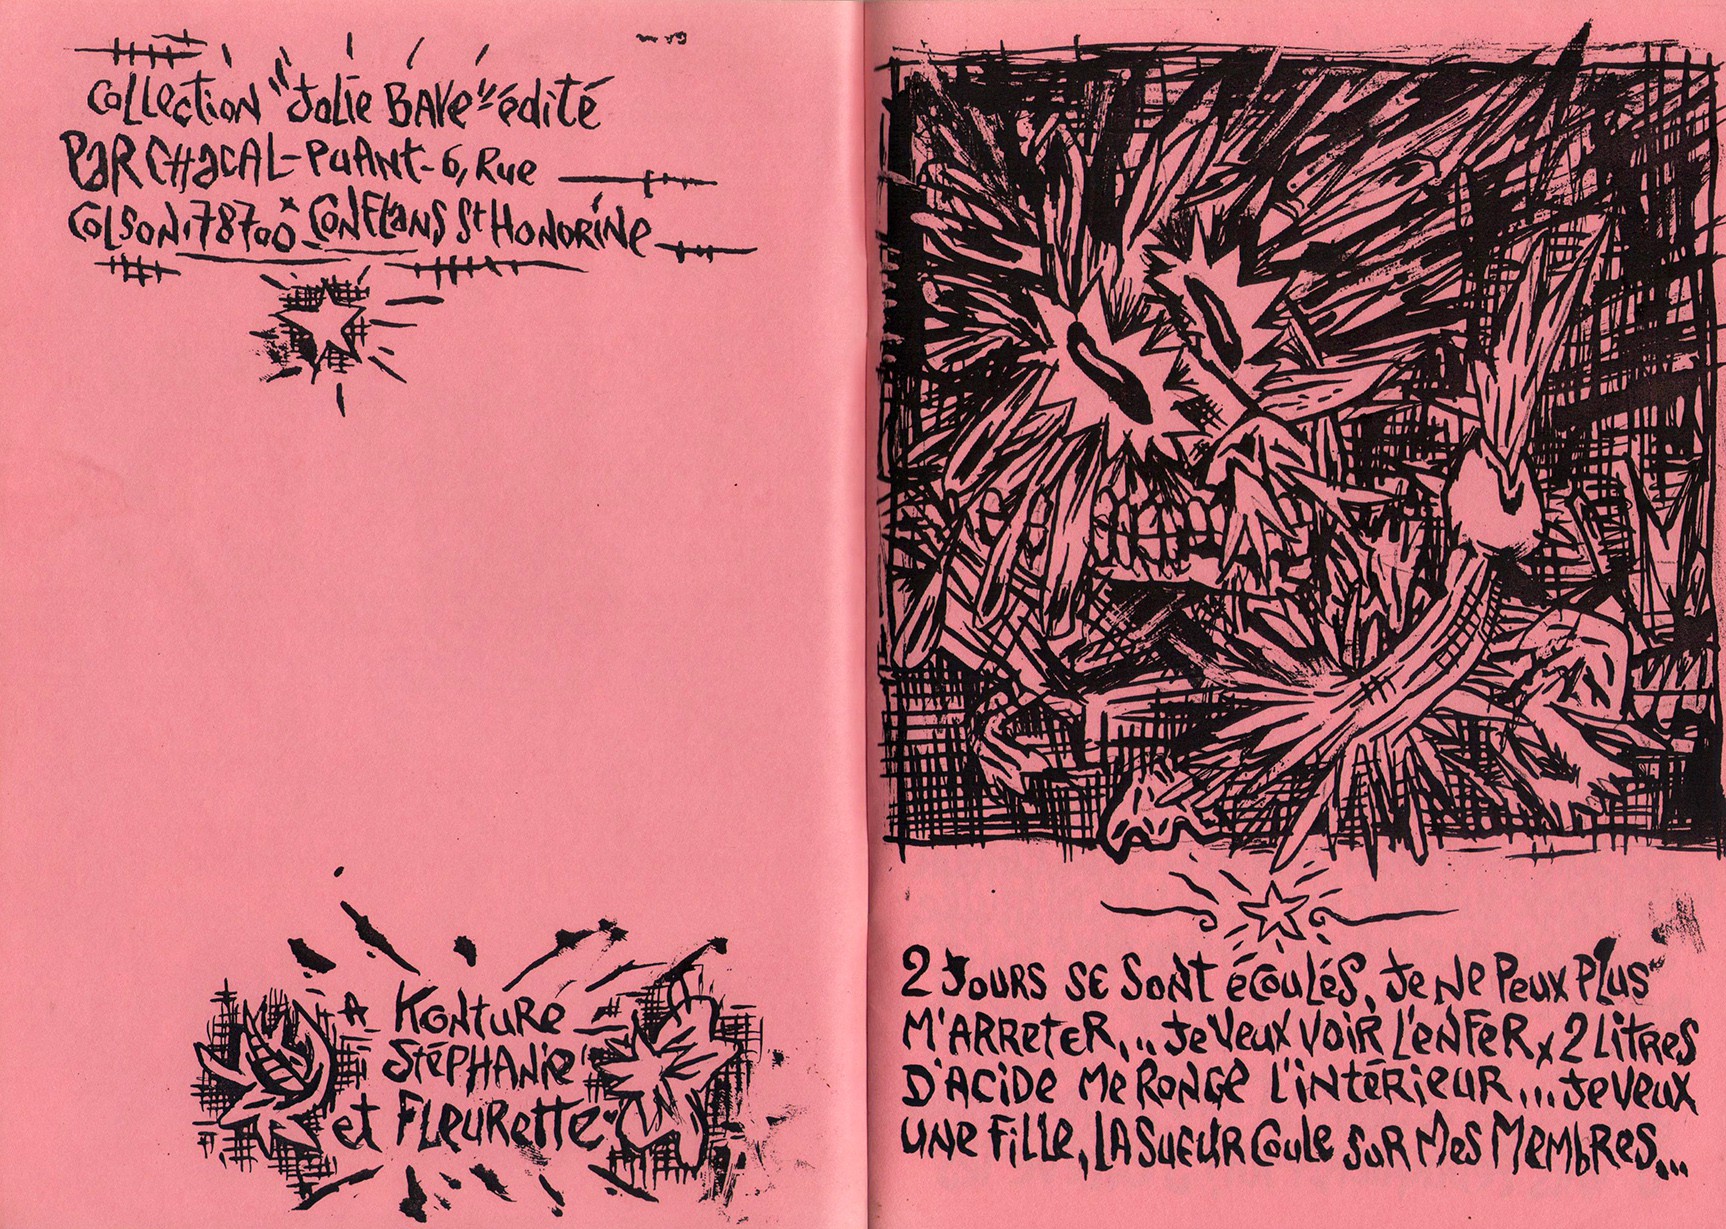 Collection "Jolie Bave" édité
par Chacal-Puant- 6, Rue
Colson 78700 Conflans St Honorine
A Konture
Stéphanie
et Fleurette
2 jours se sont écoulés, je ne peux plus
m'arreter... je veux voir l'enfer x 2 litres
d'acide me ronge l'intérieur... je veux
une fille, la sueur coule sur mes membres...